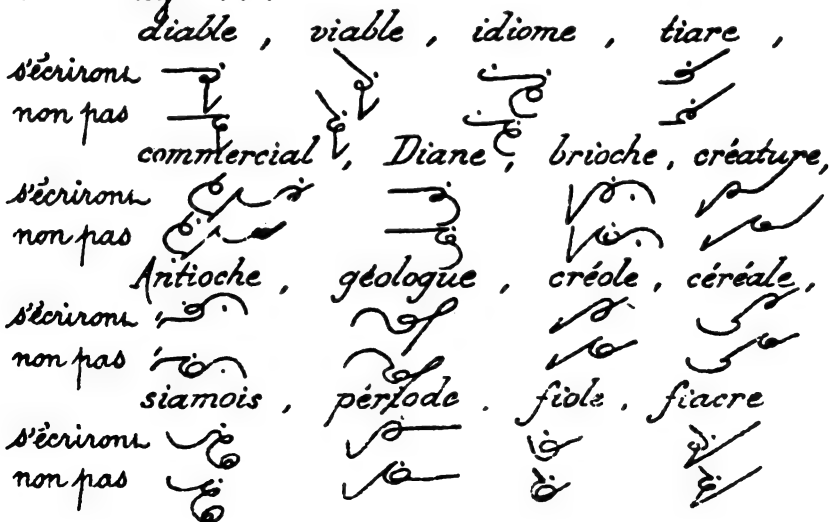 diable, viable, idiome, tiare,
s'écriront
non pas
commercial, Diane, brioche, créature,
s'écriront
non pas
Antioche, géologue, créole, céréale,
s'écriront
non pas
siamois, période. fiole, fiacre
s'écriront
non pas